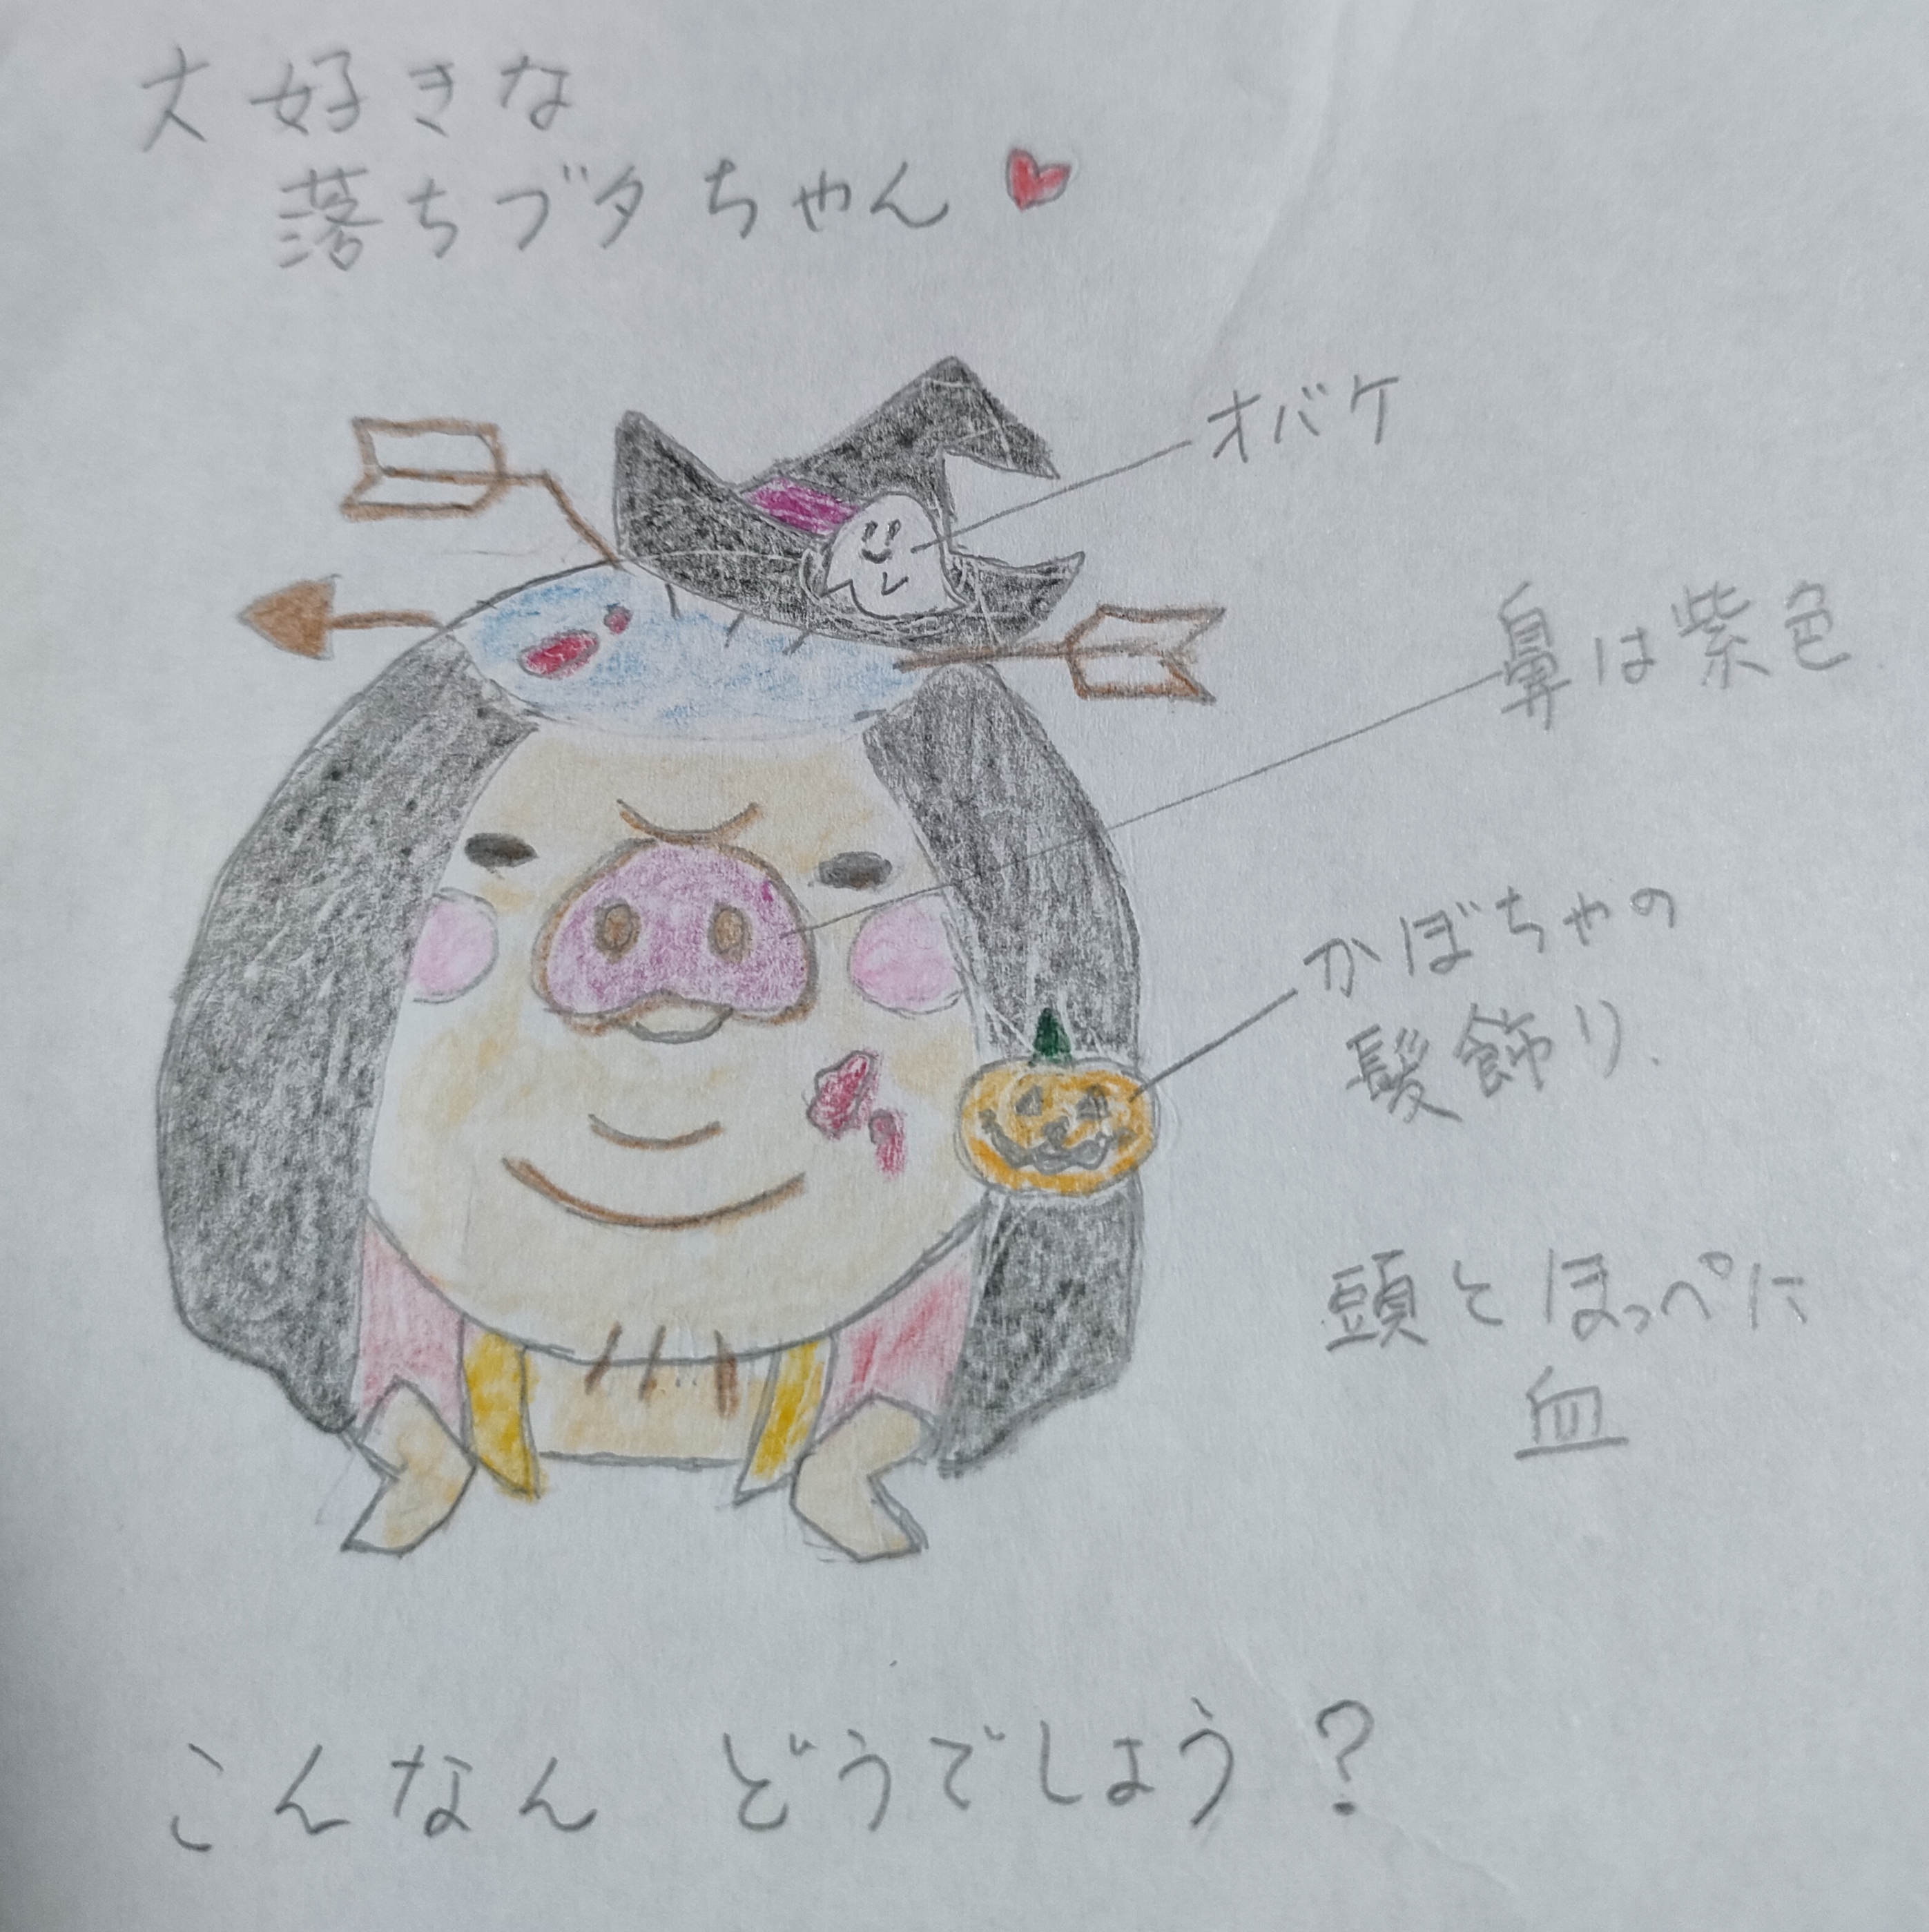 大好きな
落ちブタちゃん
オバケ
鼻は紫色
かぼちゃの
髪飾り
頭とほっぺに
血
こんなん どうでしょう?